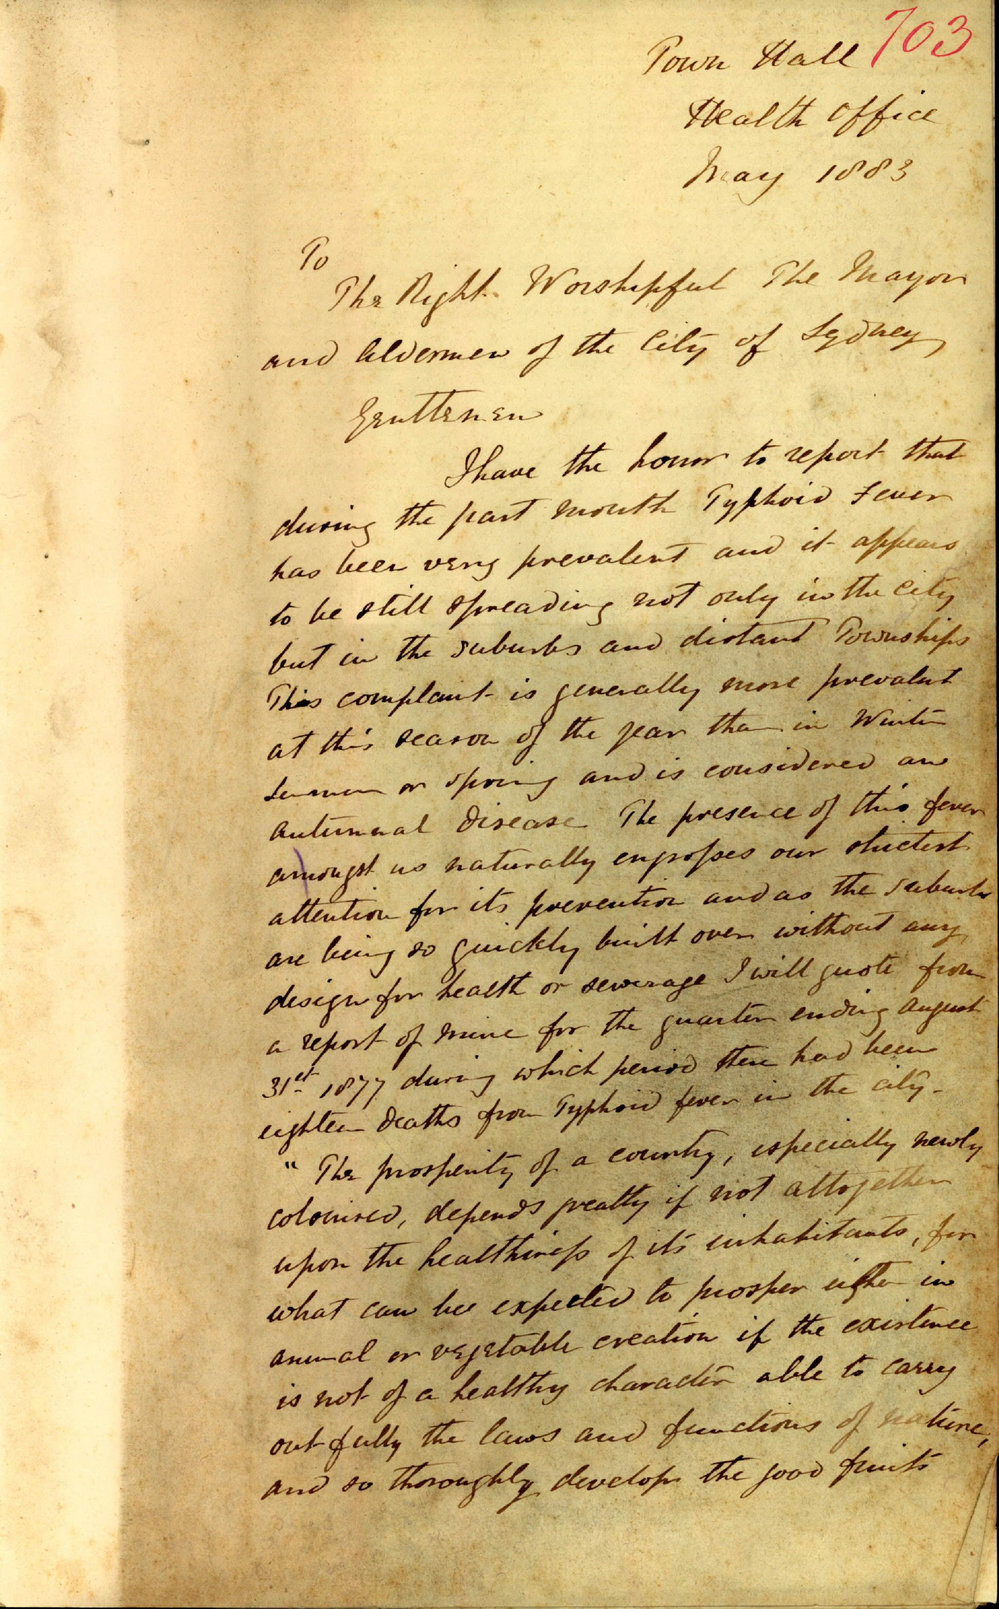 703
Town Hall
Health Office
May 1883
To
The Right Worshipful The Mayor
and Aldermen of the City of Sydney,
Gentlemen
I have the honor to report that
during the past month Typhoid Fever
has been very prevalent and it appears
to be still spreading not only in the City
but in the suburbs and distant Townships
This complaint is generally more prevalent
at this season of the year than in Winter
Summer or Spring and is considered an
autumnal disease The presence of this fever
amongst us naturally engrosses our strictest
attention for its prevention and as the suburbs
are being so quickly built over without any
design for health or sewerage I will quote from
a report of mine for the quarter ending August
31st 1877 during which period there had been
eighteen deaths from Typhoid fever in the city -
" The prosperity of a country, especially newly
colonised, depends greatly if not altogether
upon the healthiness of its inhabitants, for
what can be expected to prosper either in
animal or vegetable creation if the existence
is not of a healthy character able to carry
out fully the laws and functions of nature,
and so thoroughly develop the good fruits